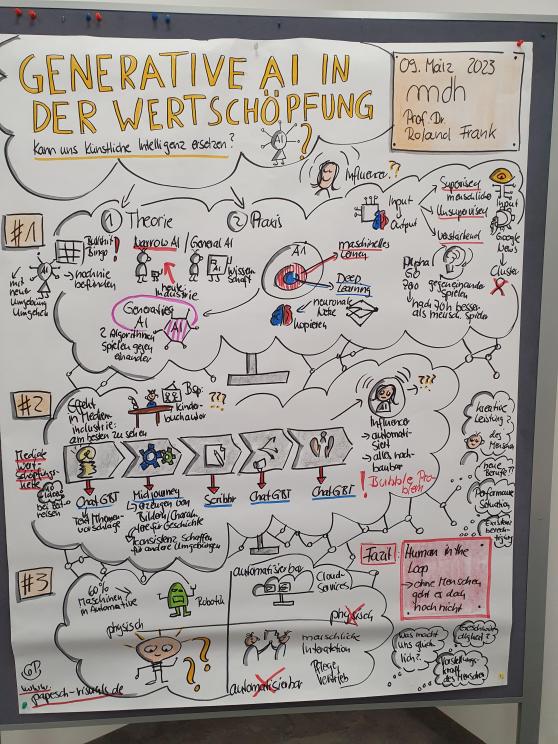 GENERATIVE AI IN
DER WERTSCHÖPFUNG
Kann uns Künstliche Intelligenz ersetzen?
AI
?
09. März 2023
mdh
Prof. Dr.
Roland Frank
Influencer??
#1
① Theorie
② Praxis
Bullshit
Bingo !
AI
→ noch nie
befinden
→ mit
neuer
Umgebung
umgehen
Narrow AI / General AI
heute
Industrie
Wissen
schaft
Generative
AI
2 Algorithmen
spielen gegen
einander
AI
AI
maschinelles
Lernen
Deep
Learning
neuronale
Netze
kopieren
Input
Output
Supervised
menschliche
Input
Unsupervised
Google
News
Cluster
Verstärkend
Alpha
GO
Zero
gegeneinander
spielen
→ nach 40h besser
als mensch. Spieler
#2
Effekt
in Medien
industrie:
am besten zu sehen
Bsp:
Kinder-
buchautor
???
Mediale
Wert-
schöpfungs-
kette
Chat GBT
Text/Themen-
vorschläge
Midjourney
→ Erzeugen von
Bildern/Charak-
tere für Geschichte
→ Konsistenz schaffen
für andere Umgebungen
Scribbr
Chat GBT
Chat GBT
???
Influencer
→ automati-
siert
→ alles nach-
baubar
! Bubble Pro-
blem
kreative
Leistung?
des
Menschen
neue
Berufe??
Performance
Situation
Existenz
berech-
tigung
#3
60%
Maschinen
in Automotive
Robotik
physisch
??
automatisierbar
Cloud-
Services
physisch
menschliche
Interaktion
Pflege,
Vertrieb
automatisierbar
Fazit:
Human in the
Loop
→ ohne Menschen
geht es doch
noch nicht
Was macht
uns glück-
lich?
Geschwin-
digkeit?
Vorstellungs-
kraft
des Menschen
papesch-visuals.de